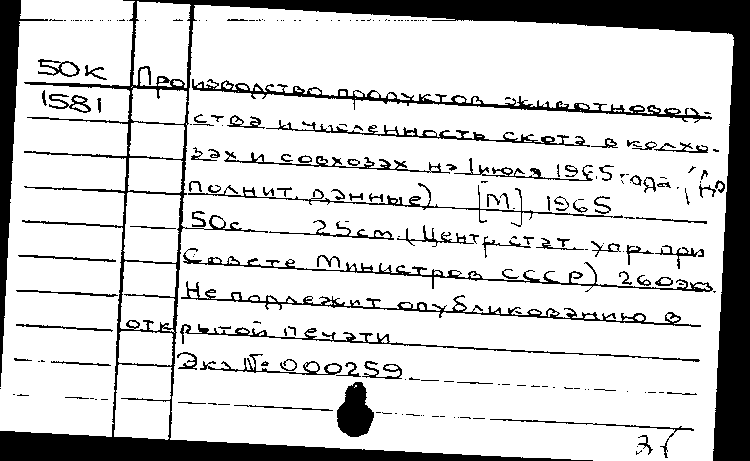 50к Производство продуктов животновод-
1581
ства и численность скота в колхо-
зах и совхозах на 1 июля 1965 года. (До
полнит. данные). [М.], 1965
50с. 25см. (Центр. стат. упр. при
Совете Министров СССР). 260экз.
Не подлежит опубликованию в
открытой печати
Экз. № 000259